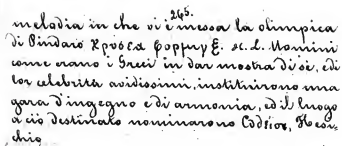 265.
melodia in che vi è messa la olimpica
di Pindaro Χρυσεα φορμιγξ. &c. L. Uomini
come erano i Greci in dar mostra di sè, e di
lor celebrità avidissimi, instituirono una
gara d'ingegno e di armonia, ed il luogo
a ciò destinato nominarono Coδειον, Hesy-
chio